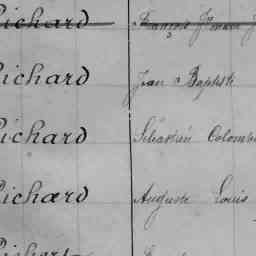 Richard François
Richard Jean Baptiste
Richard Sébastien Colombe
Richard Auguste Louis
Richard